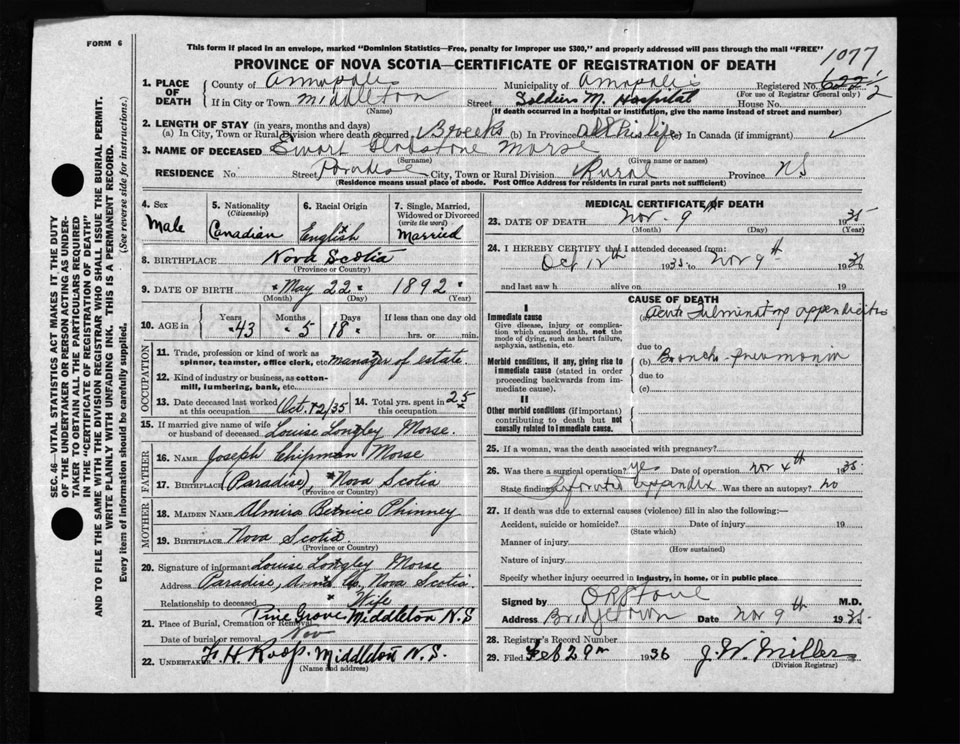 FORM 6
This form if placed in an envelope, marked "Dominion Statistics—Free, penalty for improper use $300," and properly addressed will pass through the mail "FREE"
1077
PROVINCE OF NOVA SCOTIA—CERTIFICATE OF REGISTRATION OF DEATH
1. PLACE OF DEATH County of Annapolis Municipality of Annapolis Registered No.
(For use of Registrar General only)
If in City or Town Middleton Street Soldiers M. Hospital House No.
(Name) (If death occurred in a hospital or institution, give the name instead of street and number)
2. LENGTH OF STAY (in years, months and days)
(a) In City, Town or Rural Division where death occurred weeks (b) In Province all his life (c) In Canada (if immigrant)
3. NAME OF DECEASED Ewart Gladstone Morse
(Surname) (Given name or names)
RESIDENCE No. Street Paradise City, Town or Rural Division Rural Province NS
(Residence means usual place of abode. Post Office Address for residents in rural parts not sufficient)
4. Sex Male
5. Nationality (Citizenship) Canadian
6. Racial Origin English
7. Single, Married, Widowed or Divorced (write the word) Married
8. BIRTHPLACE Nova Scotia
(Province or Country)
9. DATE OF BIRTH May 22 1892
(Month) (Day) (Year)
10. AGE in Years 43 Months 5 Days 18 If less than one day old hrs. or min.
OCCUPATION
11. Trade, profession or kind of work as spinner, teamster, office clerk, etc. manager of estate
12. Kind of industry or business, as cotton-mill, lumbering, bank, etc.
13. Date deceased last worked at this occupation Oct. 12/35 14. Total yrs. spent in this occupation 25
15. If married give name of wife or husband of deceased Louise Longley Morse.
FATHER
16. NAME Joseph Chipman Morse
17. BIRTHPLACE (Paradise), Nova Scotia
(Province or Country)
MOTHER
18. MAIDEN NAME Almira Bernice Phinney
19. BIRTHPLACE Nova Scotia.
(Province or Country)
20. Signature of informant Louise Longley Morse
Address Paradise, Anna Co, Nova Scotia
Relationship to deceased Wife
21. Place of Burial, Cremation or Removal Pine Grove Middleton N.S
Date of burial or removal Nov
22. UNDERTAKER F. H. Roop. Middleton N.S.
(Name and address)
MEDICAL CERTIFICATE OF DEATH
23. DATE OF DEATH Nov. 9th 1935
(Month) (Day) (Year)
24. I HEREBY CERTIFY that I attended deceased from:
Oct 12th 1935 to Nov 9th 193
and last saw h alive on 19
CAUSE OF DEATH
I
Immediate cause
Give disease, injury or complication which caused death, not the mode of dying, such as heart failure, asphyxia, asthenia, etc.
Acute fulminating appendicitis
due to
Morbid conditions, if any, giving rise to immediate cause (stated in order proceeding backwards from immediate cause).
(b) Broncho-pneumonia
due to
(c)
II
Other morbid conditions (if important) contributing to death but not causally related to immediate cause.
25. If a woman, was the death associated with pregnancy?
26. Was there a surgical operation? yes Date of operation Nov 4th 1935
State findings Perforated appendix Was there an autopsy? no
27. If death was due to external causes (violence) fill in also the following:—
Accident, suicide or homicide? Date of injury 19
(State which)
Manner of injury
(How sustained)
Nature of injury
Specify whether injury occurred in industry, in home, or in public place
Signed by M.D.
Address Bridgetown Date Nov 9th 1935
28. Registrar's Record Number
29. Filed Feb 29th 1936 J. W. Miller
(Division Registrar)
SEC. 46—VITAL STATISTICS ACT MAKES IT THE DUTY
OF THE UNDERTAKER OR PERSON ACTING AS UNDER-
TAKER TO OBTAIN ALL THE PARTICULARS REQUIRED
IN THE "CERTIFICATE OF REGISTRATION OF DEATH"
AND TO FILE THE SAME WITH THE DIVISION REGISTRAR WHO SHALL ISSUE THE BURIAL PERMIT.
WRITE PLAINLY WITH UNFADING INK. THIS IS A PERMANENT RECORD.
Every item of information should be carefully supplied. (See reverse side for instructions.)